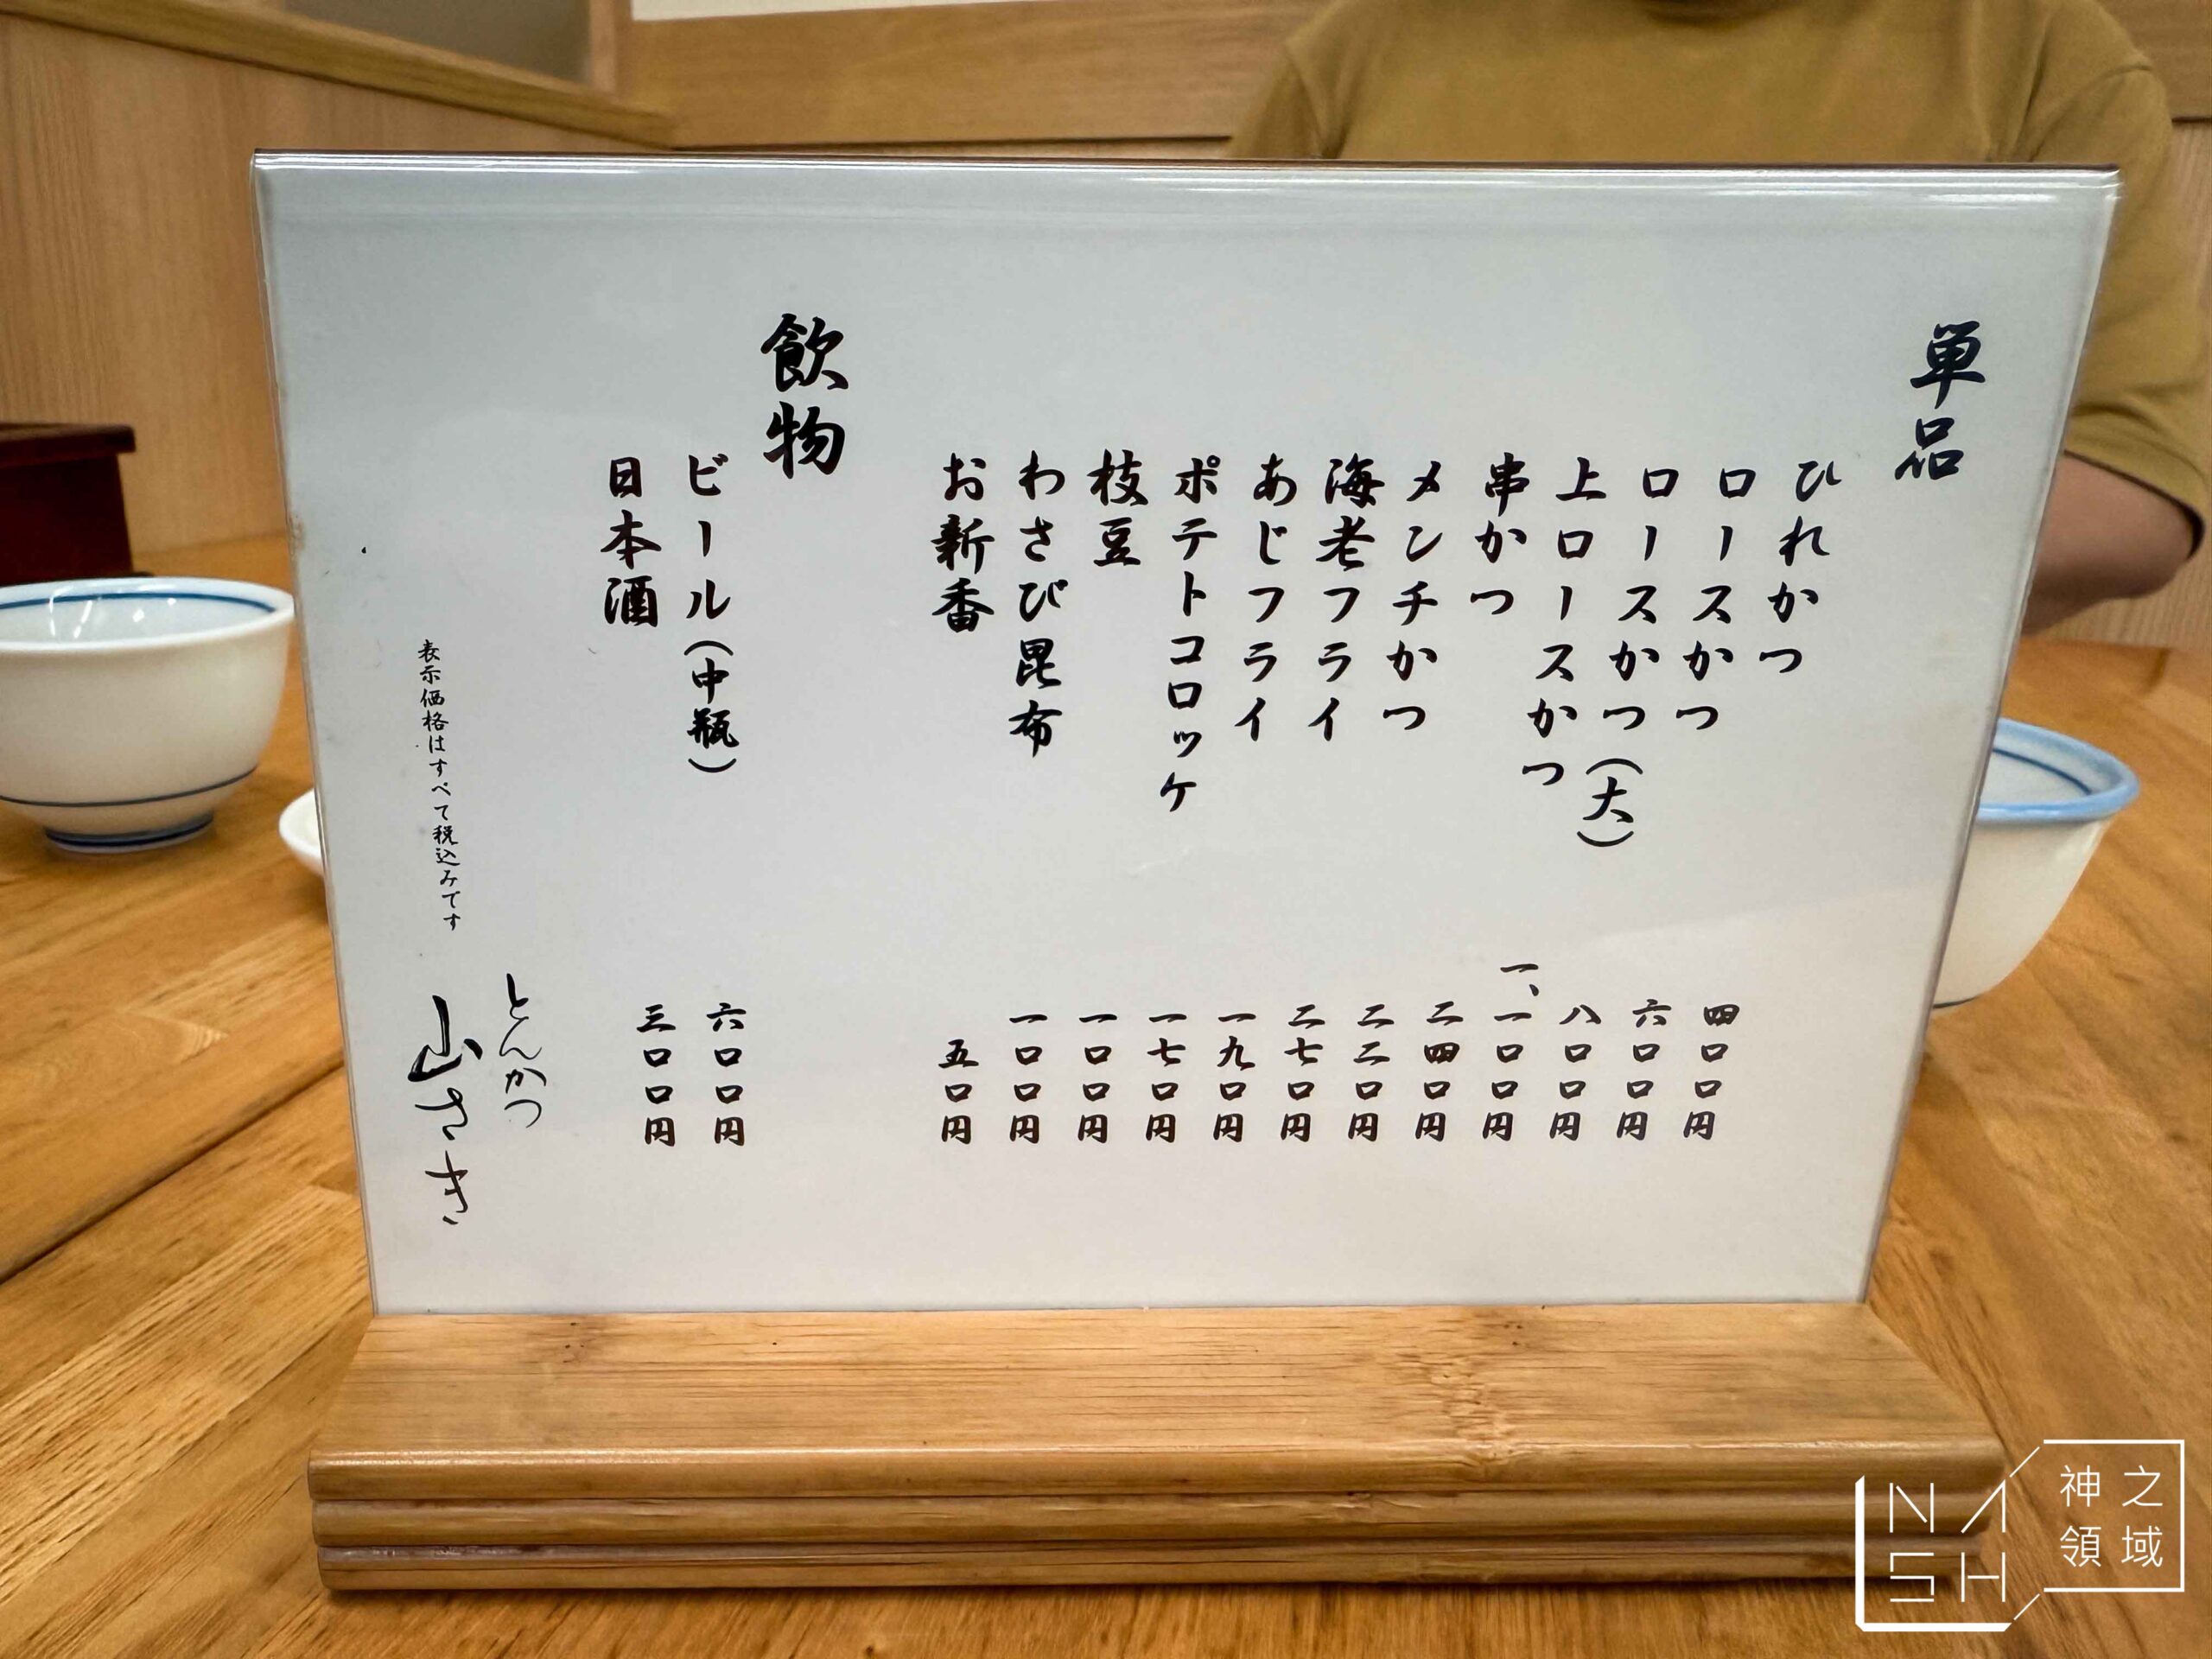 単品
ひれかつ 四〇〇円
ロースかつ 六〇〇円
ロースかつ(大) 八〇〇円
上ロースかつ 一、一〇〇円
串かつ 二四〇円
メンチかつ 二二〇円
海老フライ 二七〇円
あじフライ 一九〇円
ポテトコロッケ 一七〇円
枝豆 一〇〇円
わさび昆布 一〇〇円
お新番 五〇円
飲物
ビール(中瓶) 六〇〇円
日本酒 三〇〇円
とんかつ
山さき
表示価格はすべて税込みです
NASH
神之領域